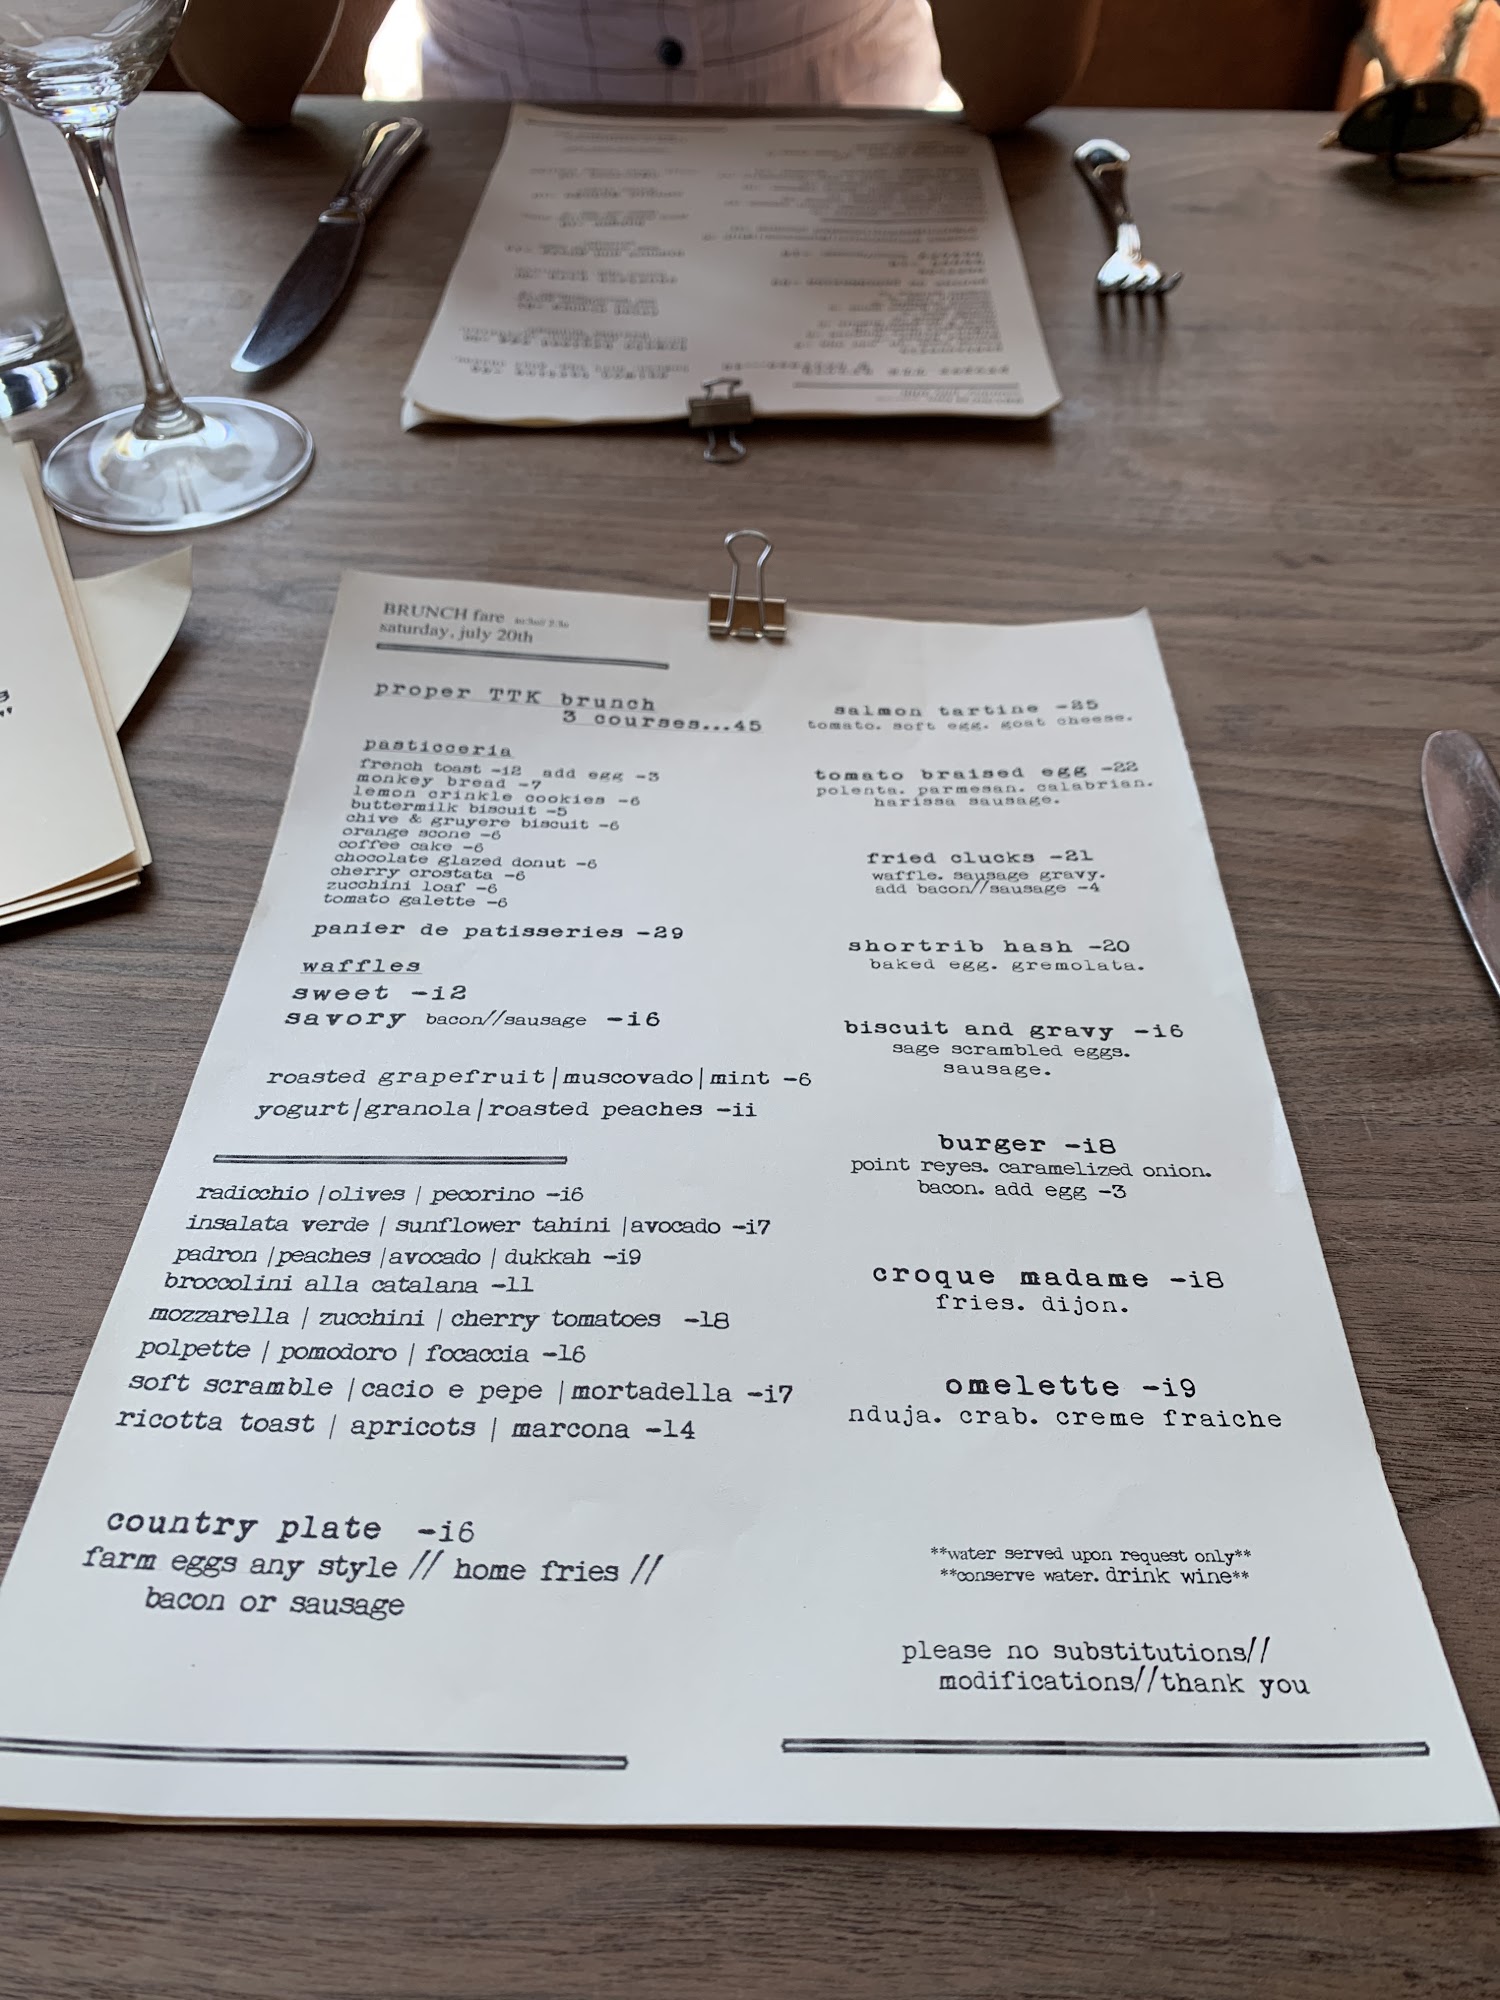 BRUNCH fare
saturday, july 20th
proper TTK brunch
3 courses...45
pasticceria
french toast -i2 add egg -3
monkey bread -7
lemon crinkle cookies -6
buttermilk biscuit -5
chive & gruyere biscuit -6
orange scone -6
coffee cake -6
chocolate glazed donut -6
cherry crostata -6
zucchini loaf -6
tomato galette -6
panier de patisseries -29
waffles
sweet -i2
savory bacon//sausage -i6
roasted grapefruit|muscovado|mint -6
yogurt|granola|roasted peaches -ii
radicchio |olives | pecorino -i6
insalata verde | sunflower tahini |avocado -i7
padron |peaches |avocado | dukkah -i9
broccolini alla catalana -11
mozzarella | zucchini | cherry tomatoes -18
polpette | pomodoro | focaccia -16
soft scramble |cacio e pepe |mortadella -i7
ricotta toast | apricots | marcona -14
country plate -i6
farm eggs any style // home fries //
bacon or sausage
salmon tartine -25
tomato. soft egg. goat cheese.
tomato braised egg -22
polenta. parmesan. calabrian.
harissa sausage.
fried clucks -21
waffle. sausage gravy.
add bacon//sausage -4
shortrib hash -20
baked egg. gremolata.
biscuit and gravy -i6
sage scrambled eggs.
sausage.
burger -i8
point reyes. caramelized onion.
bacon. add egg -3
croque madame -i8
fries. dijon.
omelette -i9
nduja. crab. creme fraiche
**water served upon request only**
**conserve water. drink wine**
please no substitutions//
modifications//thank you